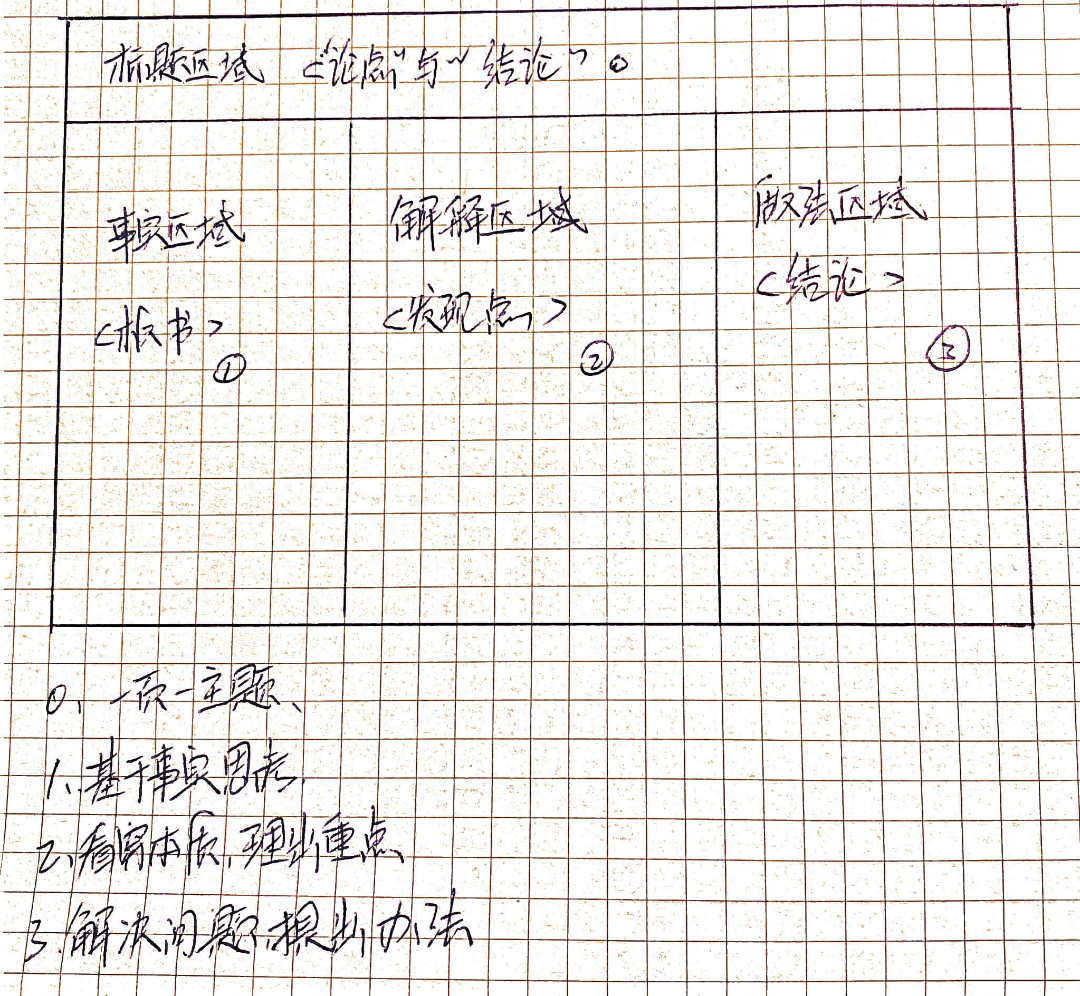 标题区域 <"论点"与"结论"> 0
事实区域
<板书>
①
解释区域
<发现点>
②
做法区域
<结论>
③
0、一页一主题、
1、基于事实思考、
2、看穿本质、理出重点
3、解决问题、提出办法